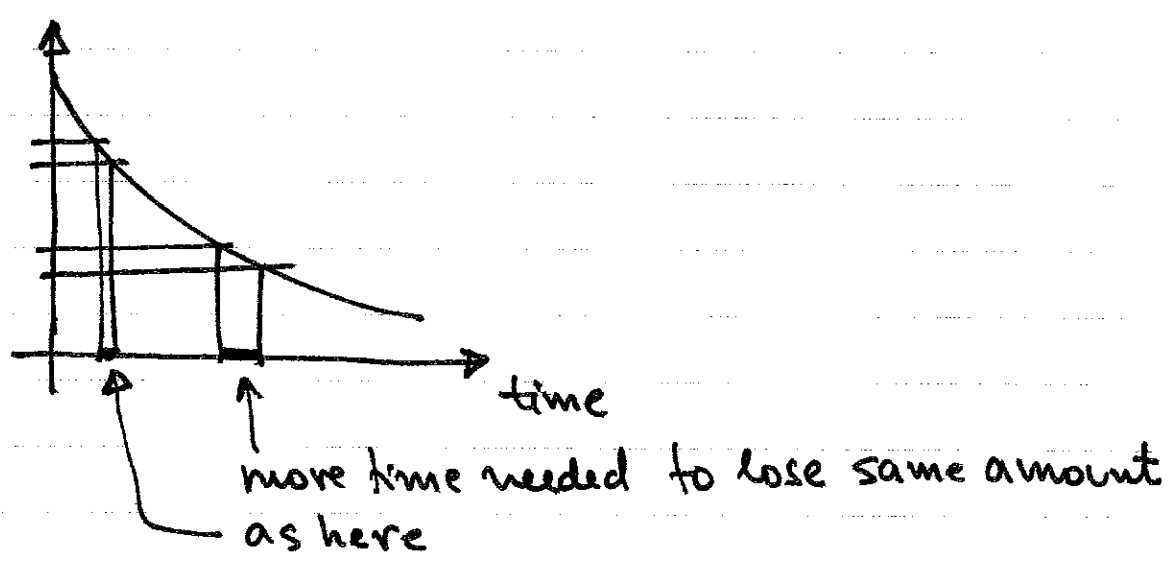 time
more time needed to lose same amount
as here